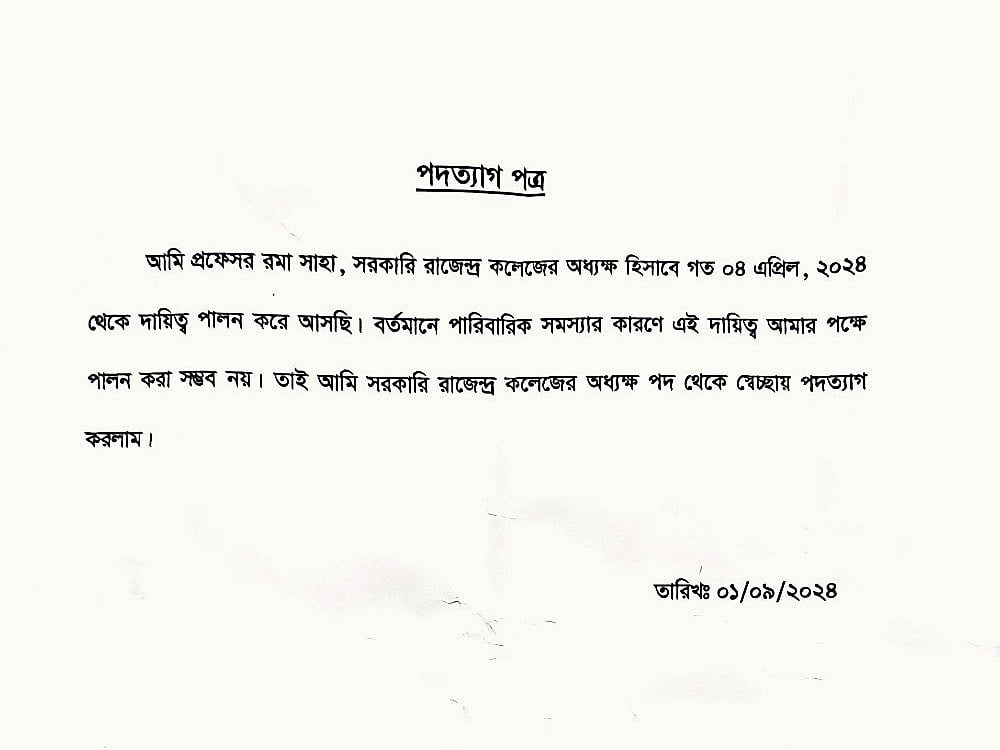 পদত্যাগ পত্র
আমি প্রফেসর রমা সাহা, সরকারি রাজেন্দ্র কলেজের অধ্যক্ষ হিসাবে গত ০৪ এপ্রিল, ২০২৪
থেকে দায়িত্ব পালন করে আসছি। বর্তমানে পারিবারিক সমস্যার কারণে এই দায়িত্ব আমার পক্ষে
পালন করা সম্ভব নয়। তাই আমি সরকারি রাজেন্দ্র কলেজের অধ্যক্ষ পদ থেকে স্বেচ্ছায় পদত্যাগ
করলাম।
তারিখঃ ০১/০৯/২০২৪